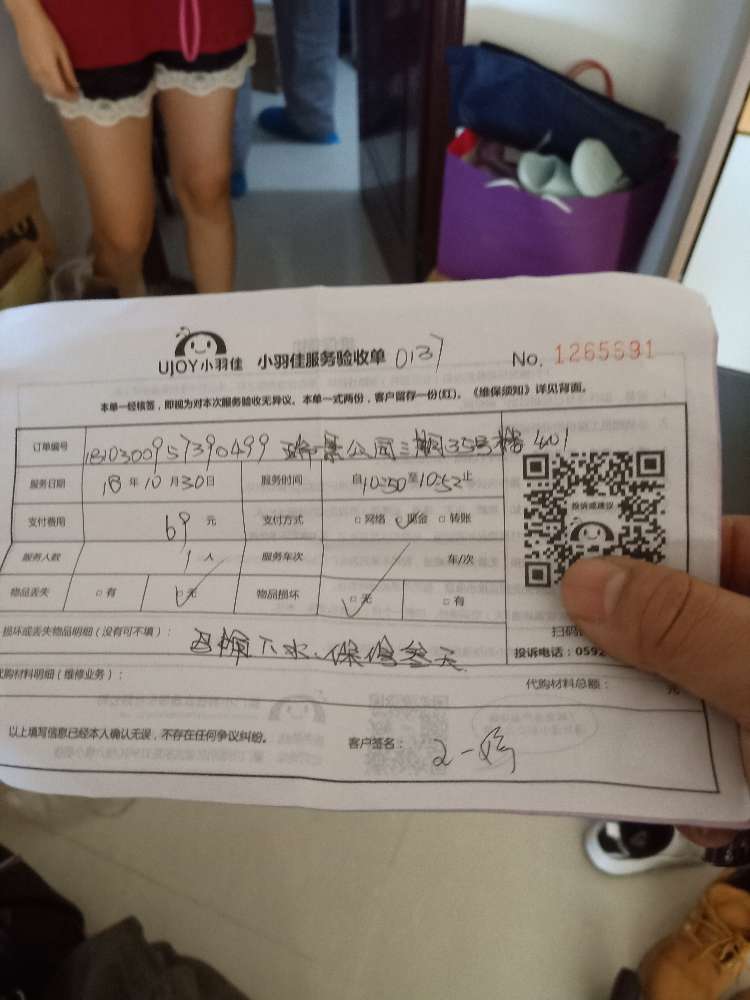 UJOY小羽佳 小羽佳服务验收单 0137 No. 1265691
本单一经核签，即视为对本次服务验收无异议。本单一式两份，客户留存一份(红)。《维保须知》详见背面。
订单编号 1810300957390499 公园三期35号楼401
服务日期 18 年 10 月 30 日 服务时间 自 10:50 至 10:52 止
支付费用 69 元 支付方式 □ 网络 □ 现金 □ 转账
服务人数 1 人 服务车次 车/次
物品丢失 □ 有 □ 无 物品损坏 □ 无 □ 有
投诉或建议
扫码
投诉电话：0592
损坏或丢失物品明细（没有可不填）：
马桶下水、保修叁天
代购材料明细（维修业务）： 代购材料总额： 元
以上填写信息已经本人确认无误，不存在任何争议纠纷。 客户签名：